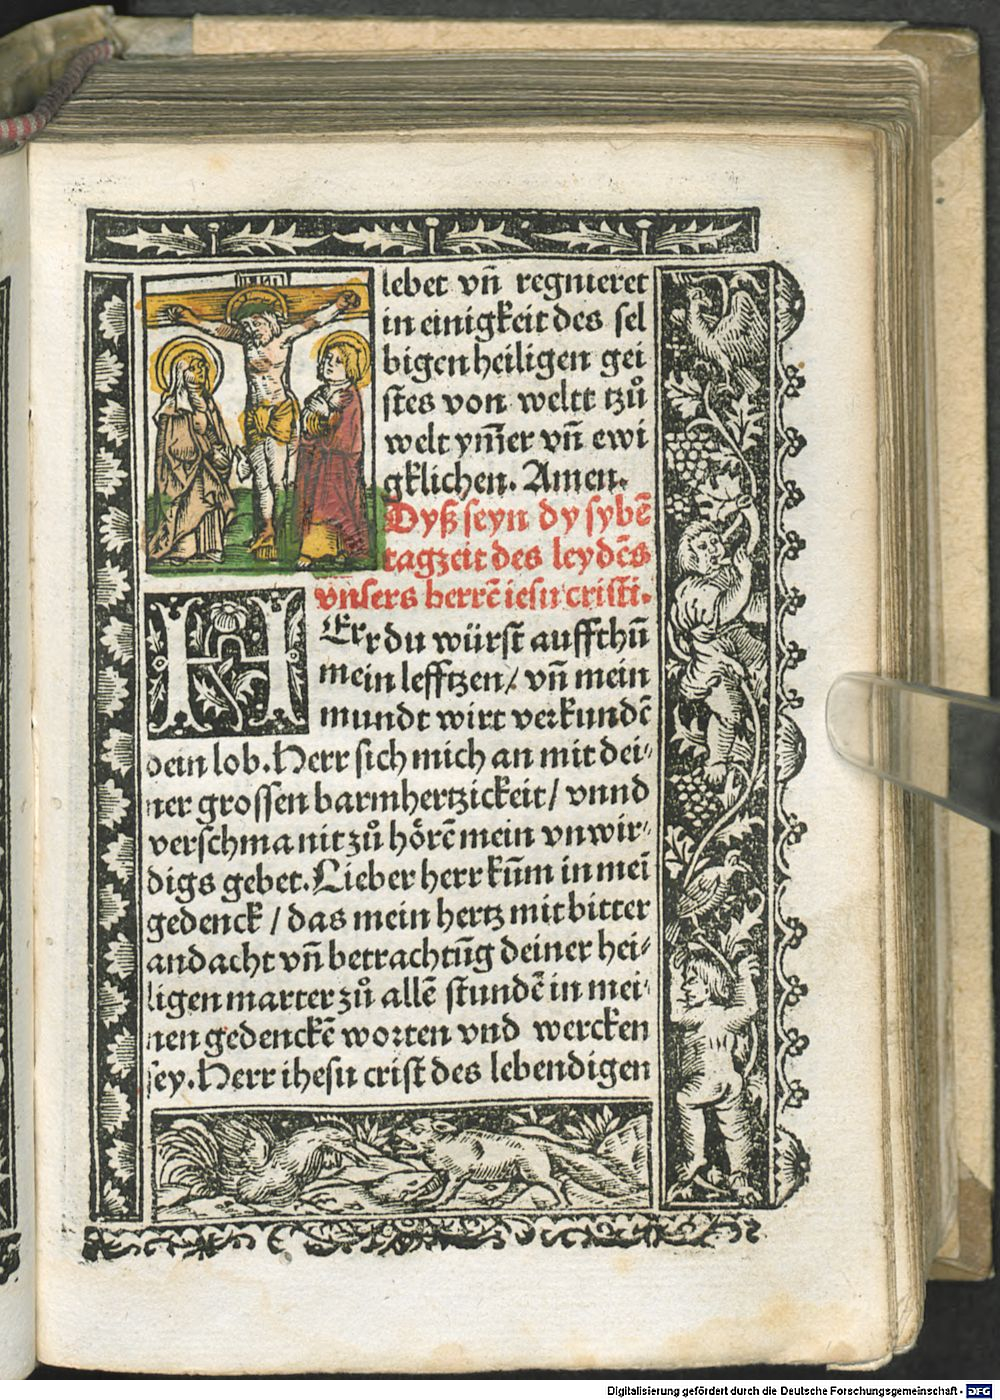 lebet vn̄ regnieret
in einigkeit des sel
bigen heiligen gei
stes von weltt tzů
welt ym̄er vn̄ ewi
gklichen. Amen.
Dyß seyn dy sybē
tagzeit des leydēs
vnsers herrē iesu cristi.
HErr du würst auffthū
mein lefftzen / vn̄ mein
mundt wirt verkundē
dein lob. Herr sich mich an mit dei⸗
ner grossen barmhertzickeit / vnnd
verschma nit zů hörē mein vnwir⸗
digs gebet. Lieber herr kum̄ in mei
gedenck / das mein hertz mit bitter
andacht vn̄ betrachtūg deiner hei⸗
ligen marter zů allē stundē in mei⸗
nen gedenckē worten vnd wercken
sey. Herr ihesu crist des lebendigen
Digitalisierung gefördert durch die Deutsche Forschungsgemeinschaft - DFG